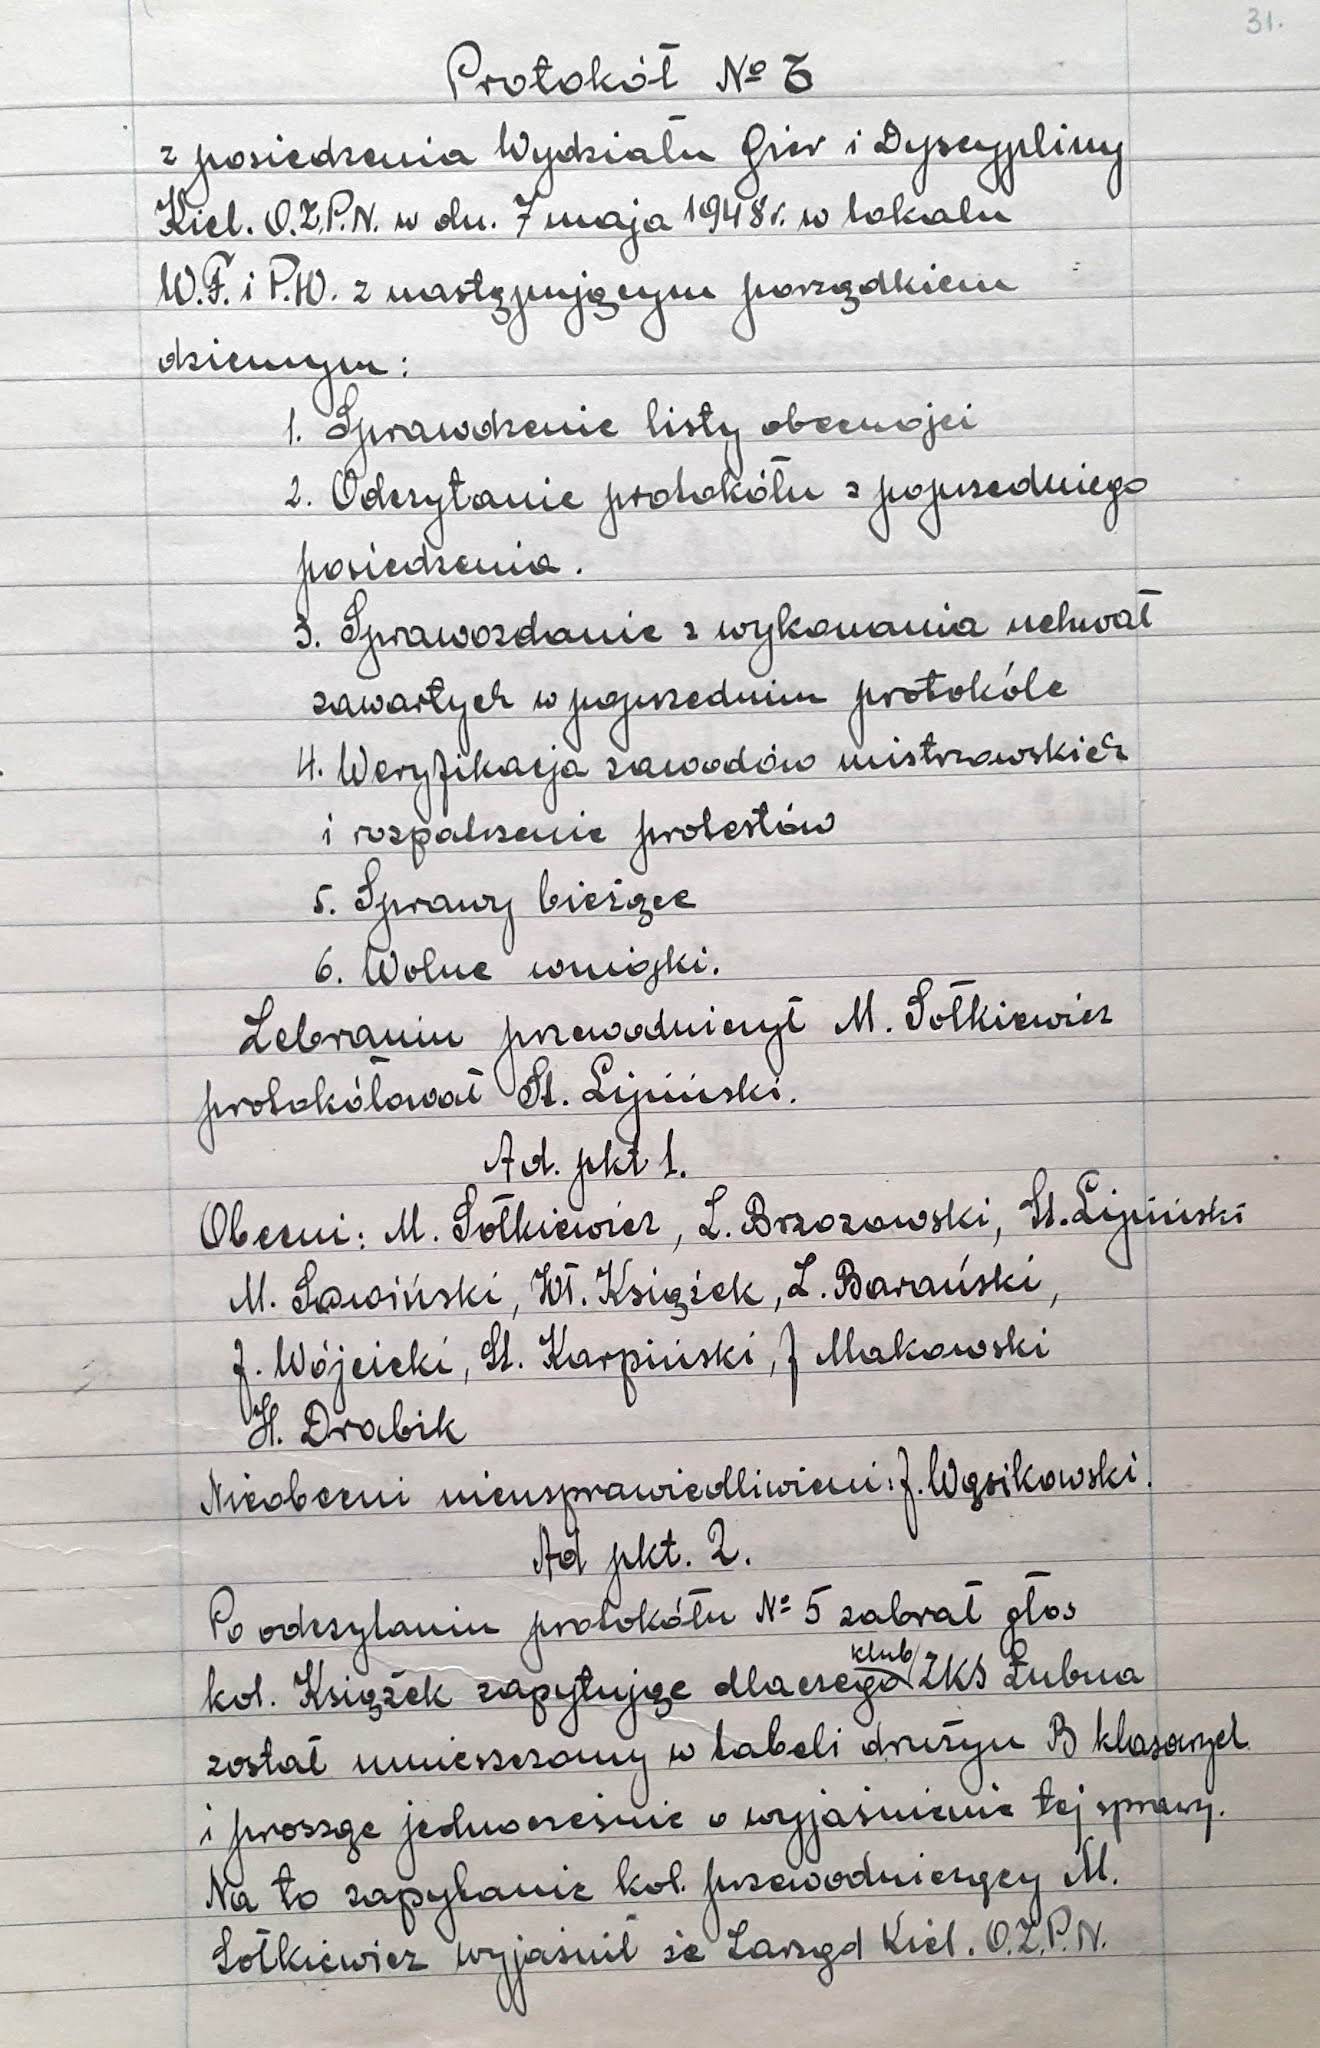 31.
Protokół № 6
z posiedzenia Wydziału Gier i Dyscypliny
Kiel. O.Z.P.N. w dn. 7 maja 1948 r. w lokalu
W.F. i P.W. z następującym porządkiem
dziennym:
1. Sprawdzenie listy obecności
2. Odczytanie protokółu z poprzedniego
posiedzenia.
3. Sprawozdanie z wykonania uchwał
zawartych w poprzednim protokóle
4. Weryfikacja zawodów mistrzowskich
i rozpatrzenie protestów
5. Sprawy bieżące
6. Wolne wnioski.
Zebraniu przewodniczył M. Sołkiewicz
protokółował St. Lipiński.
Ad. pkt 1.
Obecni: M. Sołkiewicz, L. Brzozowski, St. Lipiński
M. Sawiński, Wł. Książek, L. Barański,
J. Wójcicki, St. Karpiński, J Makowski
H. Drabik
Nieobecni nieusprawiedliwieni: J. Wąsikowski.
Ad pkt. 2.
Po odczytaniu protokółu № 5 zabrał głos
kol. Książek zapytując dlaczego klub ZKS Łubna
został umieszczony w tabeli drużyn B klasowych
i prosząc jednocześnie o wyjaśnienie tej sprawy.
Na to zapytanie kol. przewodniczący M.
Sołkiewicz wyjaśnił że Zarząd Kiel. O.Z.P.N.